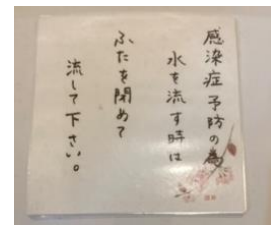 感染症予防の為
水を流す時は
ふたを閉めて
流して下さい。